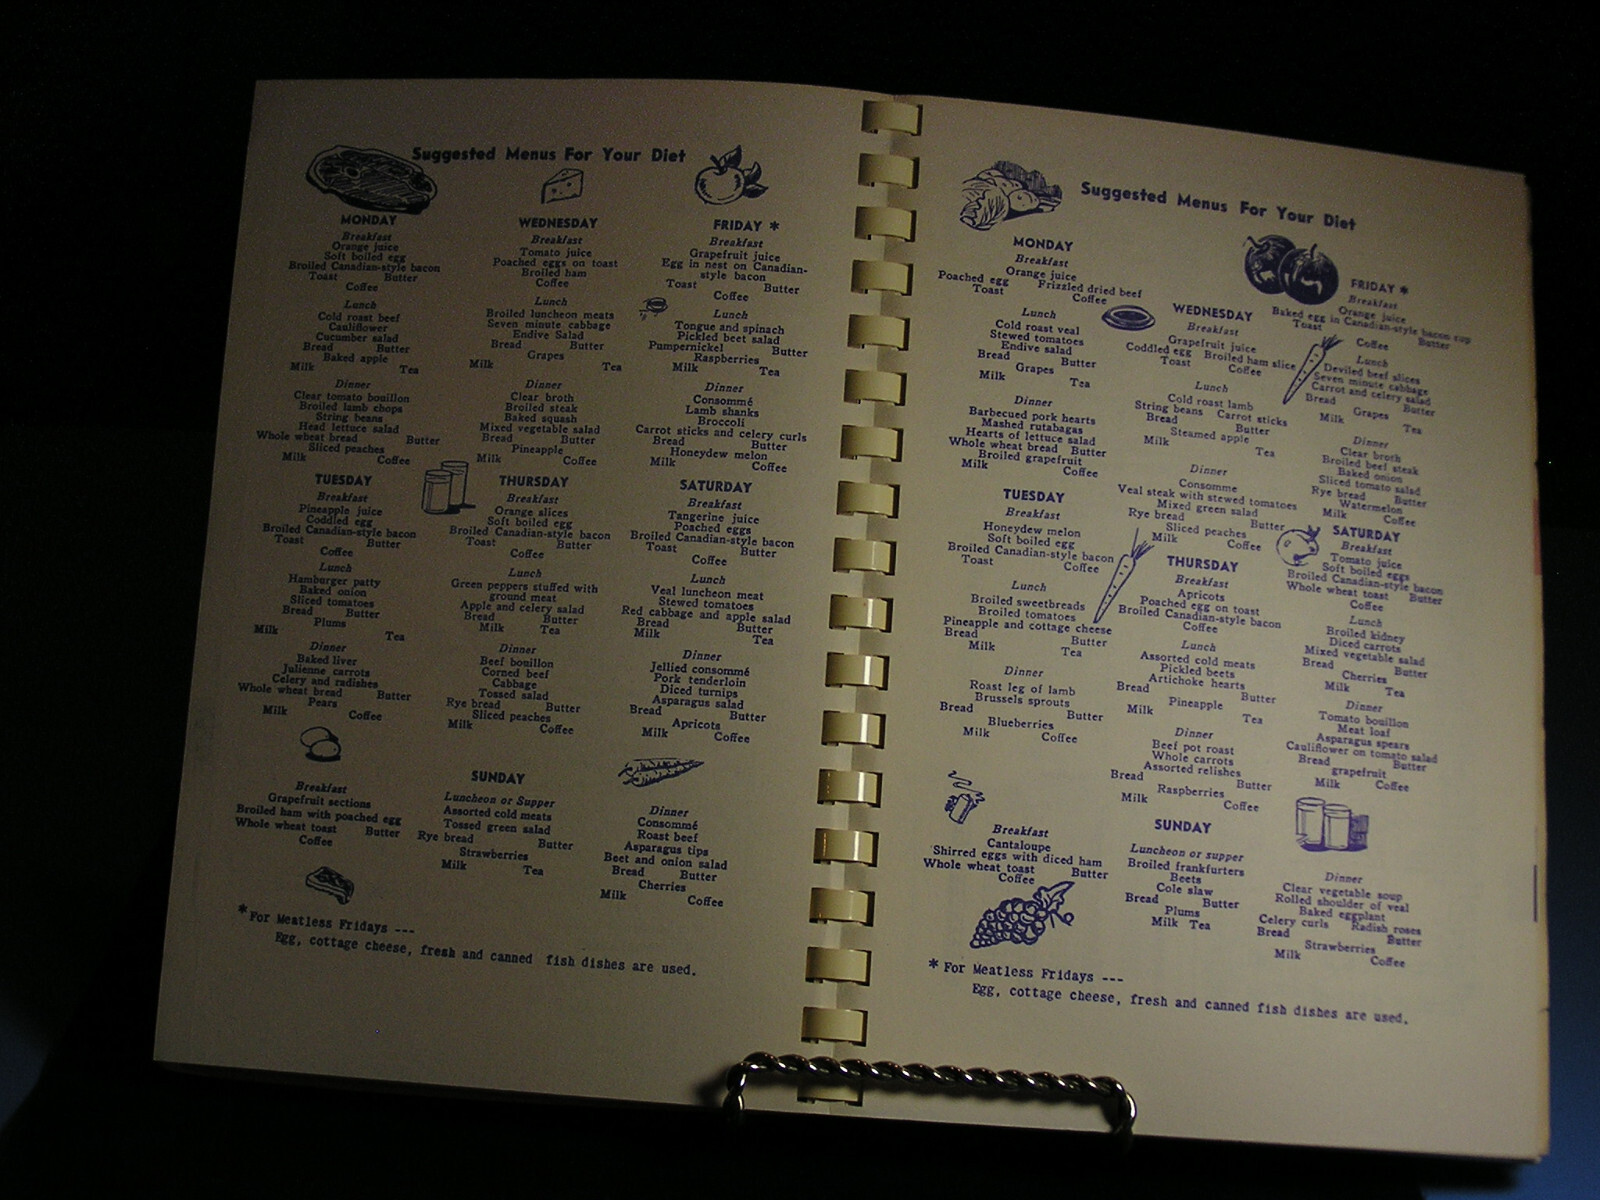 Suggested Menus For Your Diet
MONDAY
Breakfast
Orange juice
Soft boiled egg
Broiled Canadian-style bacon
Toast Butter
Coffee
Lunch
Cold roast beef
Cauliflower
Cucumber salad
Bread Butter
Baked apple
Milk Tea
Dinner
Clear tomato bouillon
Broiled lamb chops
String beans
Head lettuce salad
Whole wheat bread Butter
Sliced peaches
Milk Coffee
TUESDAY
Breakfast
Pineapple juice
Coddled egg
Broiled Canadian-style bacon
Toast Butter
Coffee
Lunch
Hamburger patty
Baked onion
Sliced tomatoes
Bread Butter
Plums
Milk Tea
Dinner
Baked liver
Julienne carrots
Celery and radishes
Whole wheat bread Butter
Pears
Milk Coffee
WEDNESDAY
Breakfast
Tomato juice
Poached eggs on toast
Broiled ham
Coffee
Lunch
Broiled luncheon meats
Seven minute cabbage
Endive Salad
Bread Butter
Grapes
Milk Tea
Dinner
Clear broth
Broiled steak
Baked squash
Mixed vegetable salad
Bread Butter
Pineapple
Milk Coffee
THURSDAY
Breakfast
Orange slices
Soft boiled egg
Broiled Canadian-style bacon
Toast Butter
Coffee
Lunch
Green peppers stuffed with
ground meat
Apple and celery salad
Bread Butter
Milk Tea
Dinner
Beef bouillon
Corned beef
Cabbage
Tossed salad
Rye bread Butter
Sliced peaches
Milk Coffee
FRIDAY *
Breakfast
Grapefruit juice
Egg in nest on Canadian-
style bacon
Toast Butter
Coffee
Lunch
Tongue and spinach
Pickled beet salad
Pumpernickel Butter
Raspberries
Milk Tea
Dinner
Consommé
Lamb shanks
Broccoli
Carrot sticks and celery curls
Bread Butter
Honeydew melon
Milk Coffee
SATURDAY
Breakfast
Tangerine juice
Poached eggs
Broiled Canadian-style bacon
Toast Butter
Coffee
Lunch
Veal luncheon meat
Stewed tomatoes
Red cabbage and apple salad
Bread Butter
Milk Tea
Dinner
Jellied consommé
Pork tenderloin
Diced turnips
Asparagus salad
Bread Butter
Apricots
Milk Coffee
SUNDAY
Breakfast
Grapefruit sections
Broiled ham with poached egg
Whole wheat toast Butter
Coffee
Luncheon or Supper
Assorted cold meats
Tossed green salad
Rye bread Butter
Strawberries
Milk Tea
Dinner
Consommé
Roast beef
Asparagus tips
Beet and onion salad
Bread Butter
Cherries
Milk Coffee
*For Meatless Fridays ---
Egg, cottage cheese, fresh and canned fish dishes are used.
Suggested Menus For Your Diet
MONDAY
Breakfast
Orange juice
Poached egg Frizzled dried beef
Toast Coffee
Lunch
Cold roast veal
Stewed tomatoes
Endive salad
Bread Butter
Grapes
Milk Tea
Dinner
Barbecued pork hearts
Mashed rutabagas
Hearts of lettuce salad
Whole wheat bread Butter
Broiled grapefruit
Milk Coffee
TUESDAY
Breakfast
Honeydew melon
Soft boiled egg
Broiled Canadian-style bacon
Toast Coffee
Lunch
Broiled sweetbreads
Broiled tomatoes
Pineapple and cottage cheese
Bread Butter
Milk Tea
Dinner
Roast leg of lamb
Brussels sprouts
Bread Butter
Blueberries
Milk Coffee
WEDNESDAY
Breakfast
Grapefruit juice
Coddled egg Broiled ham slice
Toast Coffee
Lunch
Cold roast lamb
String beans Carrot sticks
Bread Butter
Steamed apple
Milk Tea
Dinner
Consomme
Veal steak with stewed tomatoes
Mixed green salad
Rye bread Butter
Sliced peaches
Milk Coffee
THURSDAY
Breakfast
Apricots
Poached egg on toast
Broiled Canadian-style bacon
Coffee
Lunch
Assorted cold meats
Pickled beets
Artichoke hearts
Bread Butter
Pineapple
Milk Tea
Dinner
Beef pot roast
Whole carrots
Assorted relishes
Bread Butter
Raspberries
Milk Coffee
FRIDAY *
Breakfast
Orange juice
Baked egg in Canadian-style bacon cup
Toast Butter
Coffee
Lunch
Deviled beef slices
Seven minute cabbage
Carrot and celery salad
Bread Butter
Grapes
Milk Tea
Dinner
Clear broth
Broiled beef steak
Baked onion
Sliced tomato salad
Rye bread Butter
Watermelon
Milk Coffee
SATURDAY
Breakfast
Tomato juice
Soft boiled eggs
Broiled Canadian-style bacon
Whole wheat toast Butter
Coffee
Lunch
Broiled kidney
Diced carrots
Mixed vegetable salad
Bread Butter
Cherries
Milk Tea
Dinner
Tomato bouillon
Meat loaf
Asparagus spears
Cauliflower on tomato salad
Bread Butter
grapefruit
Milk Coffee
SUNDAY
Breakfast
Cantaloupe
Shirred eggs with diced ham
Whole wheat toast Butter
Coffee
Luncheon or supper
Broiled frankfurters
Beets
Cole slaw
Bread Butter
Plums
Milk Tea
Dinner
Clear vegetable soup
Rolled shoulder of veal
Baked eggplant
Celery curls Radish roses
Bread Butter
Strawberries
Milk Coffee
*For Meatless Fridays ---
Egg, cottage cheese, fresh and canned fish dishes are used.